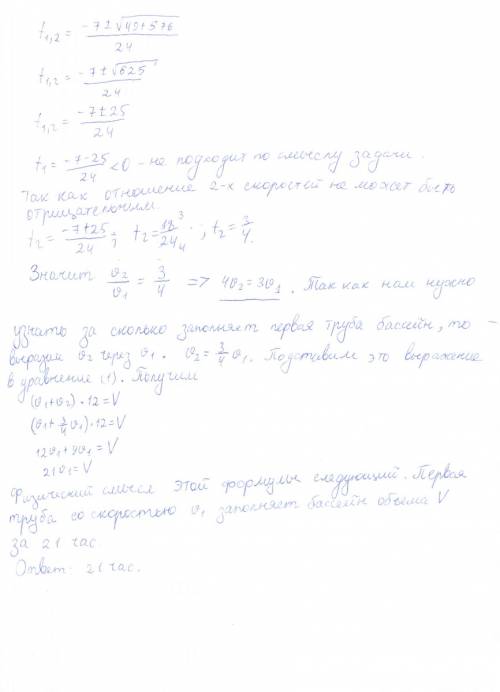 t₁,₂ = (-7±√(49+576))/24
t₁,₂ = (-7±√625)/24
t₁,₂ = (-7±25)/24
t₁ = (-7-25)/24 < 0 - не подходит по смыслу задачи.
Так как отношение 2-х скоростей не может быть
отрицательным.
t₂ = (-7+25)/24; t₂ = 18³/24₄ ; t₂ = 3/4.
Значит v₂/v₁ = 3/4 => 4v₂ = 3v₁. Так как нам нужно
узнать за сколько заполняет первая труба бассейн, то -
выразим v₂ через v₁. v₂ = 3/4 v₁. Подставим это выражение
в уравнение (1). Получим
(v₁+v₂)·12=V
(v₁+3/4v₁)·12=V
12v₁+9v₁=V
21v₁=V
Физический смысл этой формулы следующий. Первая
труба со скоростью v₁ заполняет бассейн объема V
за 21 час.
Ответ: 21 час.